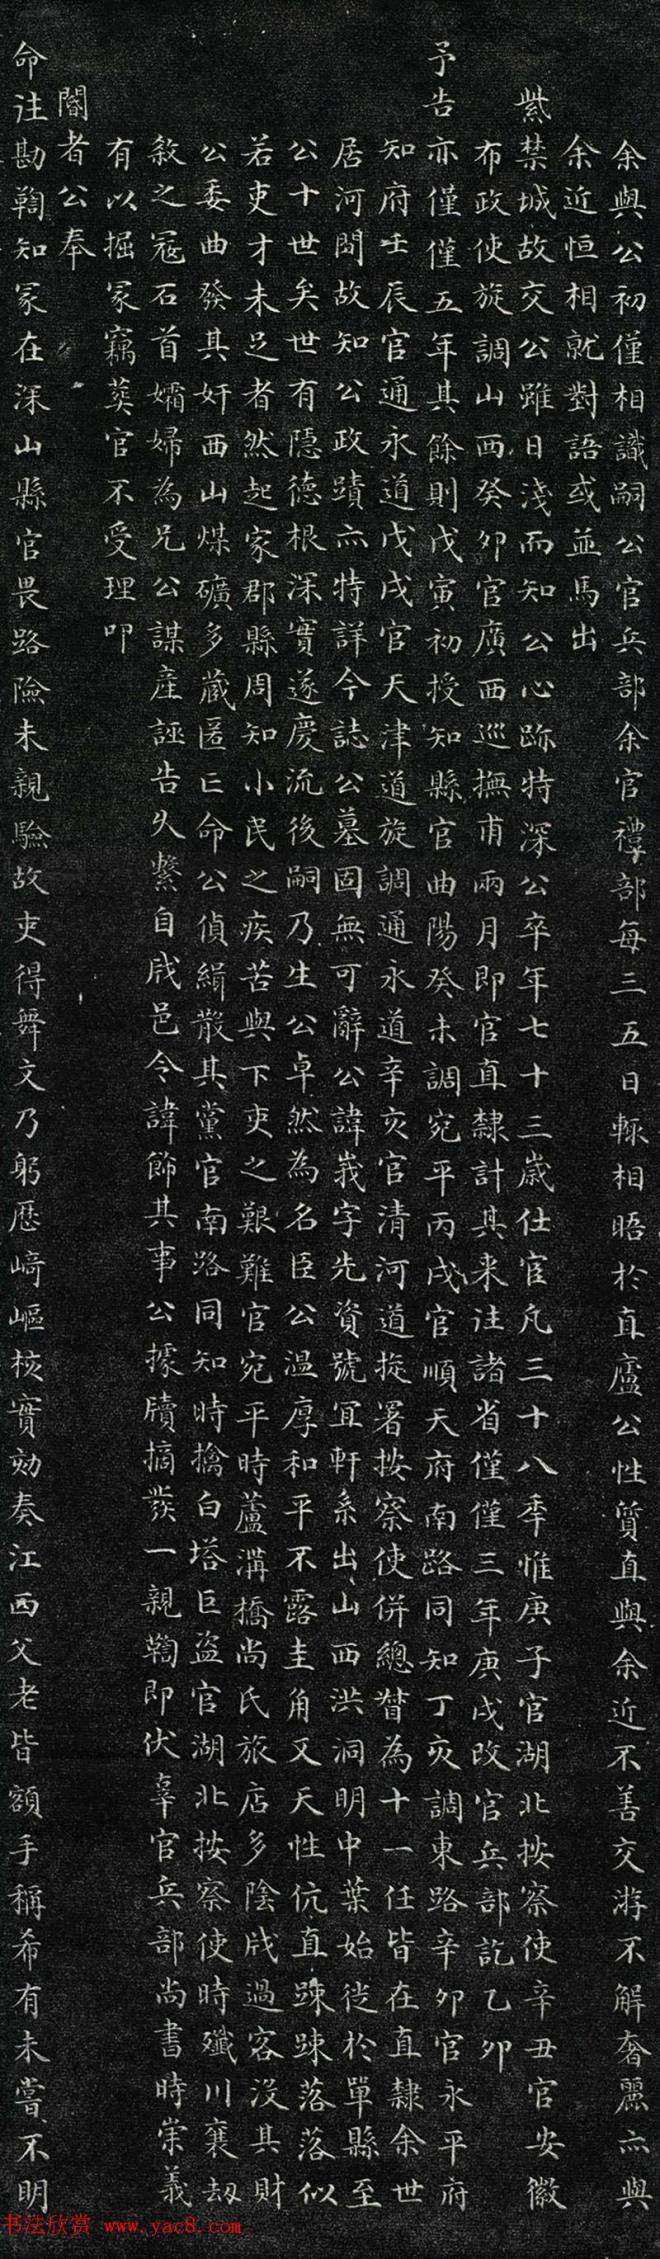 余與公初僅相識嗣公官兵部余官禮部每三五日輒相晤於直廬公性質直與余近不善交游不解奢麗亦與
余近恒相就對語或並馬出
紫禁城故交公雖日淺而知公心跡特深公卒年七十三歲仕宦凡三十八季惟庚子官湖北按察使辛丑官安徽
布政使旋調山西癸卯官廣西巡撫甫兩月即官直隸計其来往諸省僅僅三年庚戌改官兵部訖乙卯
予告亦僅僅五年其餘則戊寅初授知縣官曲陽癸未調宛平丙戌官順天府南路同知丁亥調東路辛卯官永平府
知府壬辰官通永道戊戌官天津道旋調通永道辛亥官清河道旋署按察使併總督為十一任皆在直隸余世
居河間故知公政蹟亦特詳今誌公墓固無可辭公諱峩字先資號宜軒系出山西洪洞明中葉始徙於單縣至
公十世矣世有隱德根深實遂慶流後嗣乃生公卓然為名臣公温厚和平不露圭角又天性伉直踈踈落落似
若吏才未足者然起家郡縣周知小民之疾苦與下吏之艱難官宛平時蘆溝橋尚氏旅店多陰戕過客没其財
公委曲發其奸西山煤礦多藏匿亡命公偵緝散其黨官南路同知時擒白塔巨盗官湖北按察使時殲川襄刼
敘之冦石首孀婦為兄公謀產誣告久繫自戕邑令諱飾其事公據牘摘發一親鞫即伏辜官兵部尚書時崇義
有以掘冢竊葬官不受理叩
閽者公奉
命往勘鞫知冢在深山縣官畏路險未親驗故吏得舞文乃躬歷﨑嶇核實劾奏江西父老皆額手稱希有未嘗不明
书法欣赏 www.yac8.com